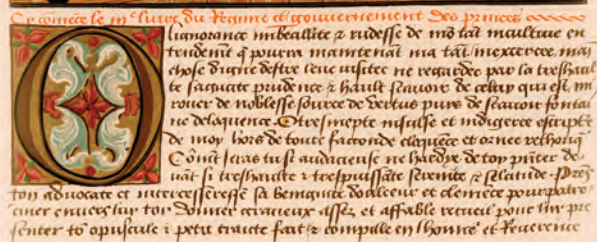 Cy cōmēce le iiie liure du Regime et gouuernement des princes
O lignorance imbeallite & rudesse de mō tāt incultiue en
tendemēt q̄ pourra maintenāt ma tāt inexcercee mai
chose digne destre leue visitee ne regardee par la treshaul
te sagacite prudence & hault scauoir de celuy qui est mi
rouer de noblesse source de vertus puys de scauoir fontai
ne deloquence. O tresinepte insulse et indigeree escripte
de moy hors de toute faconde eloquēce et ornee rethoriq̄
Cōmēt seras tu si audacieuse ne hardye de toy pñter de
uāt si treshaulte & trespuissāte serenite & celsitude. Prēs
ton aduocate et intercesseresse sa benignite doulceur et clemēce pour patro
ciner enuers luy toy donner gracieux assez et affable recueil pour luy pre
senter tō opuscule & petit traicte fait & compille en lhōneur et Reuerence